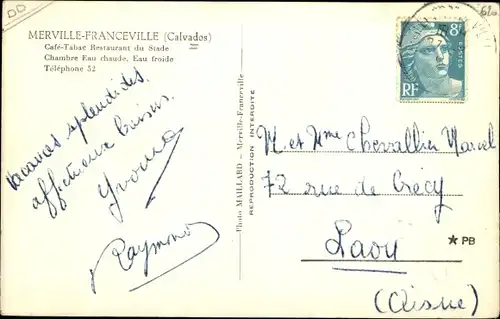 DD
MERVILLE-FRANCEVILLE (Calvados)
Café-Tabac Restaurant du Stade
Chambre Eau chaude, Eau froide
Téléphone 52
Vacances splendides.
affectueux baisers.
Yvonne
Raymond
Photo MAILLARD - Merville-Franceville
REPRODUCTION INTERDITE
8F
POSTES
RF
M. et Mme Chevallier Marcel
72 rue de Crécy
Laon
(Aisne)
* PB